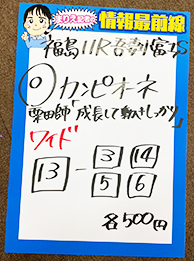 まりえ記者の
情報最前線
福島11R吾妻富士S
◎カンピオーネ
栗田師「成長して動きしっかり」
ワイド
13－3 14
5 6
各500円